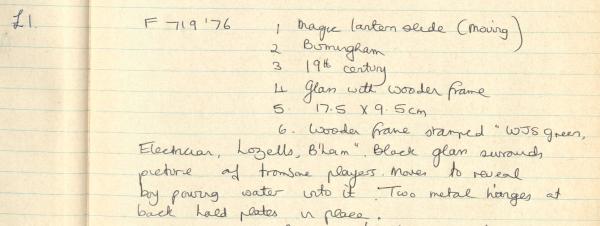 £1. F 719 '76 1 Magic lantern slide (moving)
2 Birmingham
3 19th century
4 Glass with wooden frame
5. 17.5 x 9.5cm
6. Wooden frame stamped "WJS green,
Electrician, Lozells, B'ham". Black glass surrounds
picture of trombone players. Moves to reveal
boy pouring water into it. Two metal hinges at
back hold plates in place.